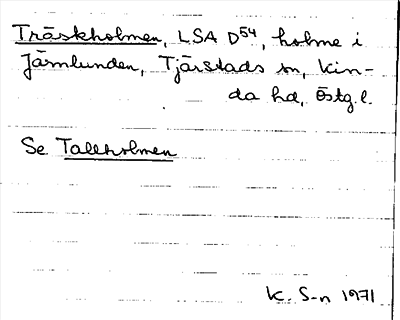 Träskholmen, LSA D54, holme i
Järnlunden, Tjärstads sn, Kin-
da hd, Östg. l.
Se Tallholmen
K. S-n 1971